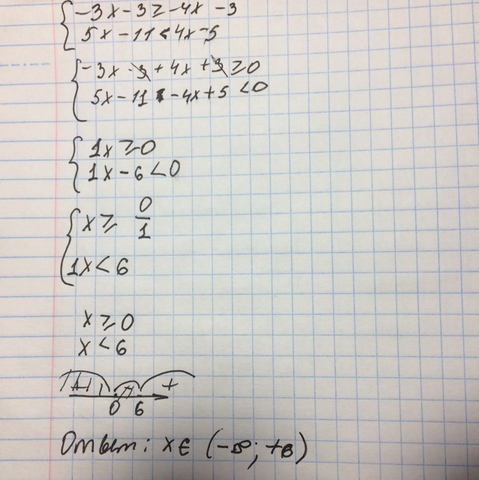 { -3x - 3 ≥ -4x - 3
5x - 11 < 4x - 5
{ -3x - 3 + 4x + 3 ≥ 0
5x - 11 - 4x + 5 < 0
{ 1x ≥ 0
1x - 6 < 0
{ x ≥ 0/1
1x < 6
x ≥ 0
x < 6
+
0 6
Ответ: x ∈ (-∞; +∞)